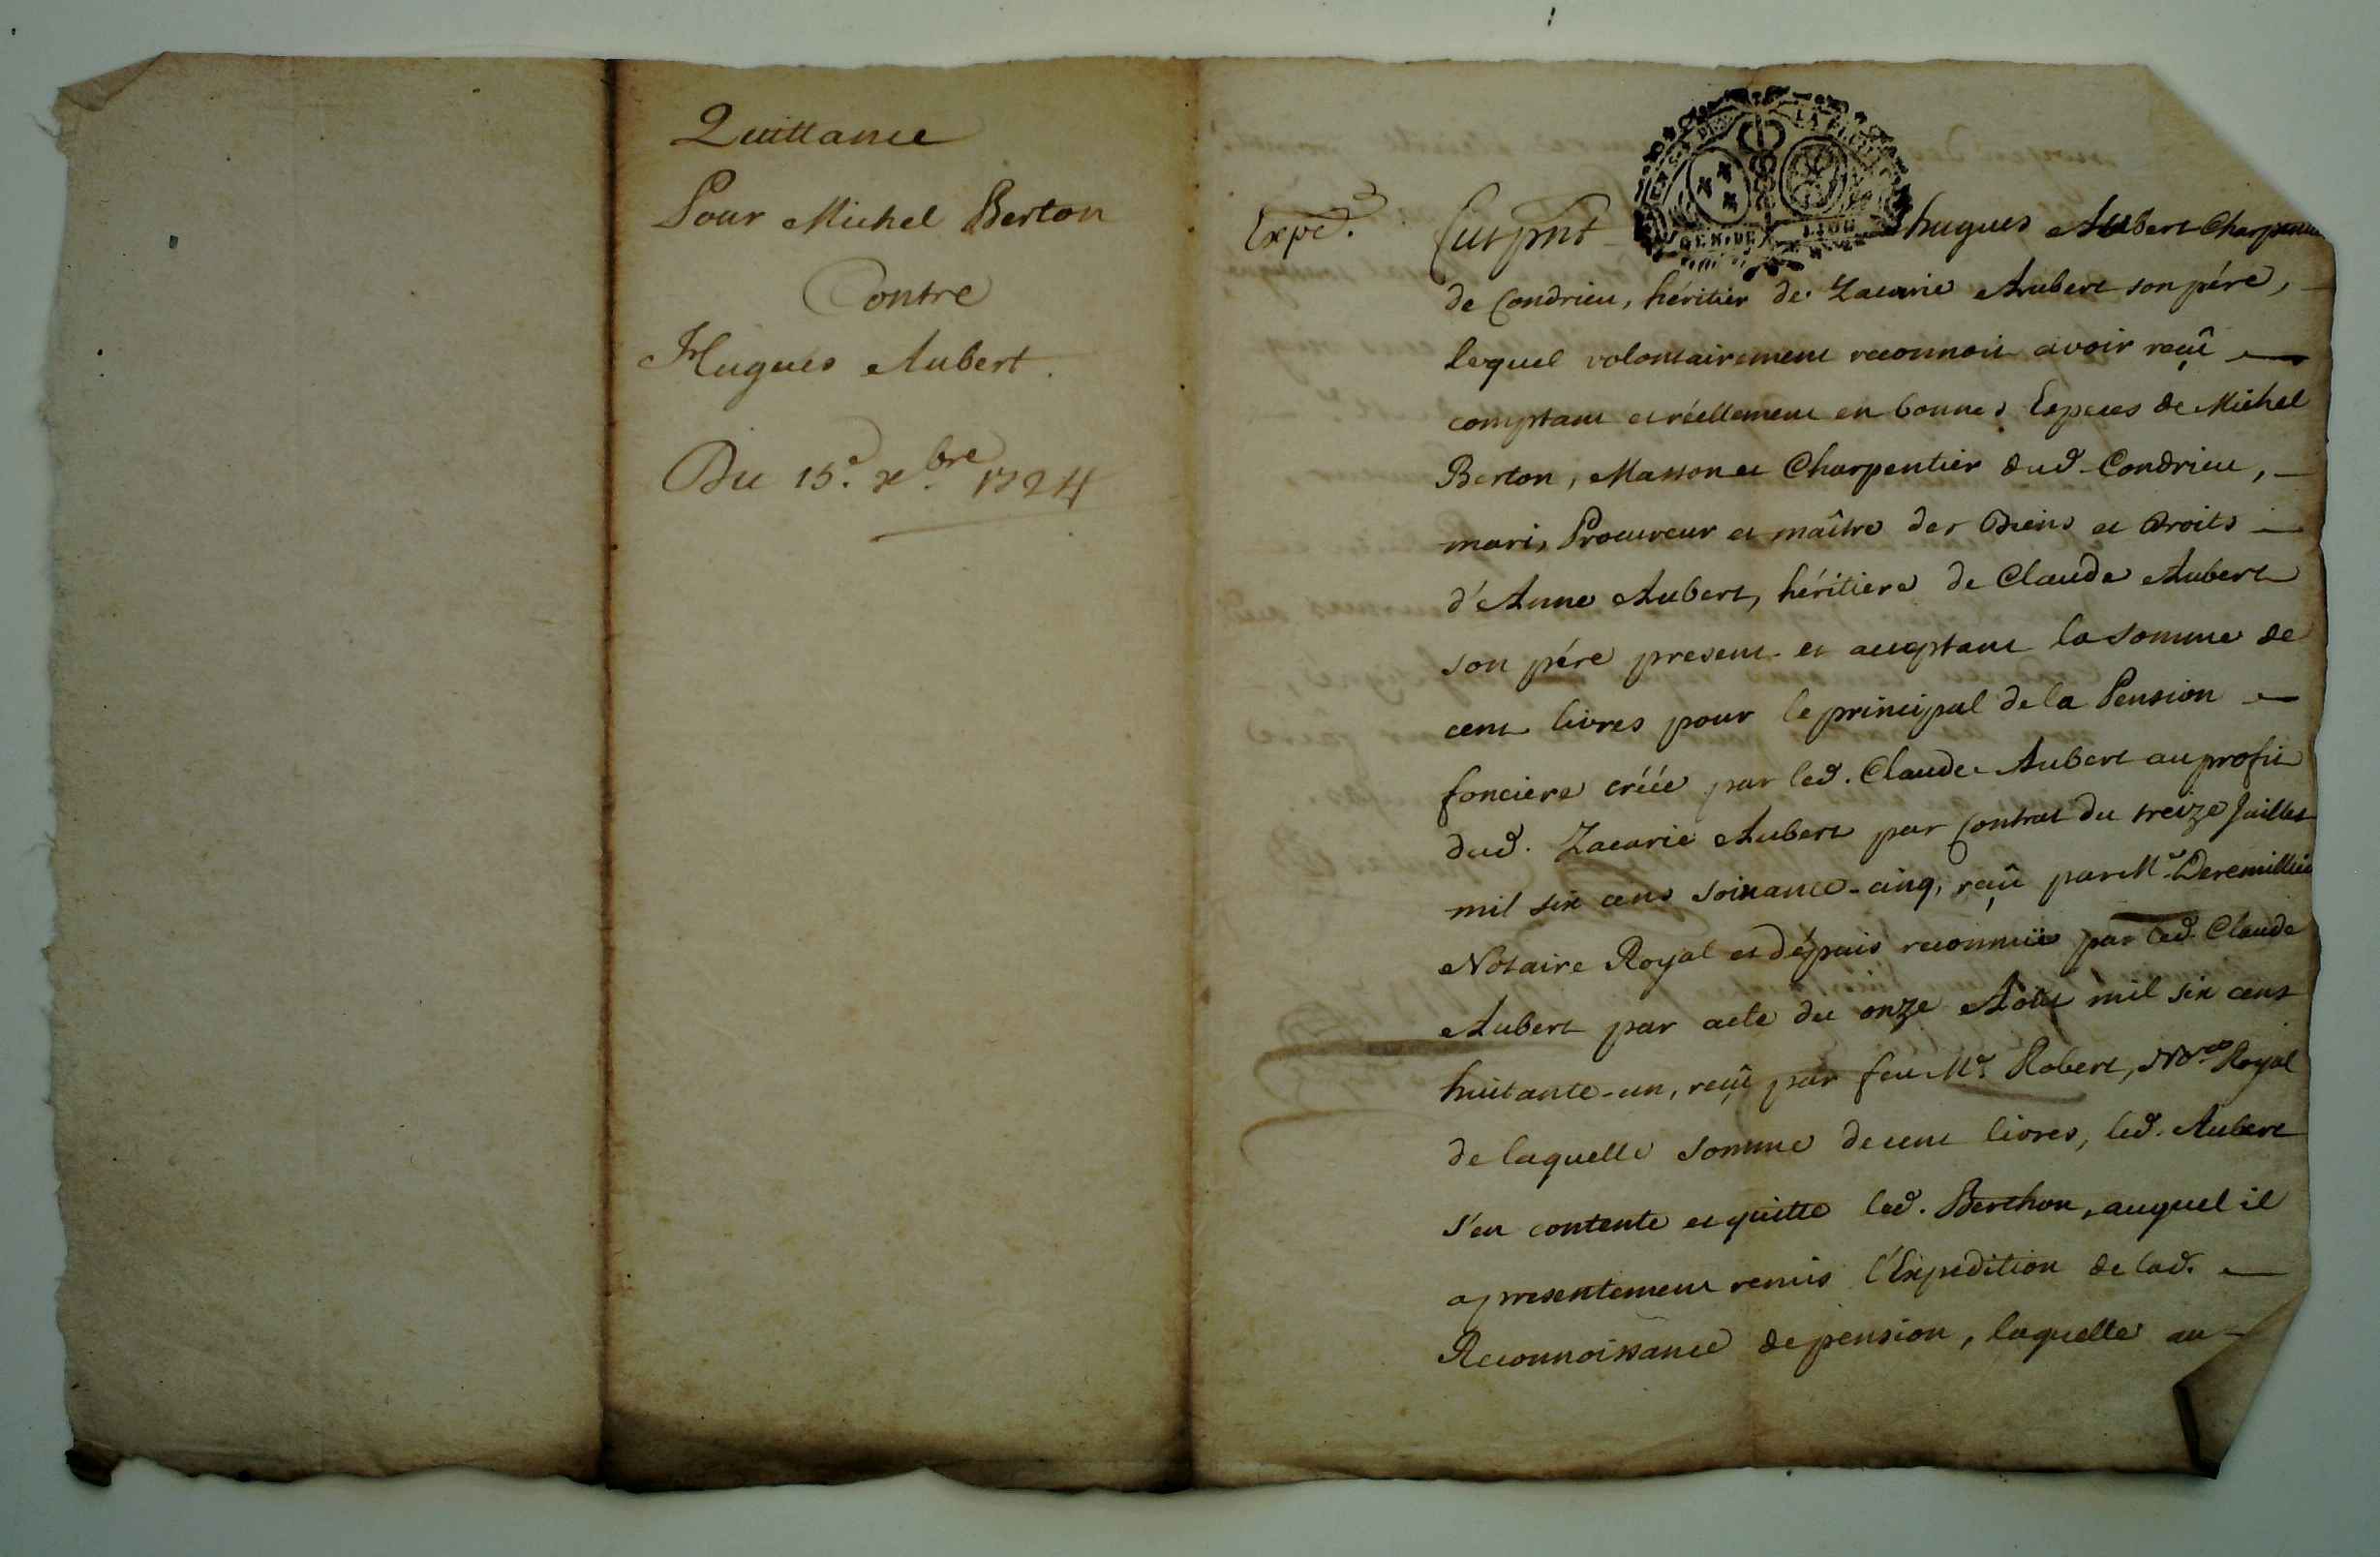 Quittance
Pour Michel Berton
Contre
Hugues Aubert.
Du 15.e xbre 1724
Expé.
Fut pnt hugues Aubert Charpentier
de Condrieu, héritier de Zacarie Aubert son pére,
lequel volontairement reconnoit avoir reçû
comptant et réellement en bonnes Especes de Michel
Berton, Masson et Charpentier dud. Condrieu,
mari, Procureur et maître des Biens et Droits
d'Anne Aubert, héritiere de Claude Aubert
son pére present et acceptant la somme de
cent livres pour le principal de la Pension
fonciere créée par led. Claude Aubert au profit
dud. Zacarie Aubert par Contrat du treize Juillet
mil six cens soixante-cinq, reçû par Me Deremillieu
Notaire Royal et dépuis reconnüe par led. Claude
Aubert par acte du onze Août mil six cens
huitante-un, reçû par feu Me Robert, Nore Royal
de laquelle somme de cent livres, led. Aubert
s'en contente et quitte led. Berthon, auquel il
a presentement remis l'Expedition de lad.
Reconnoissance de pension, laquelle au